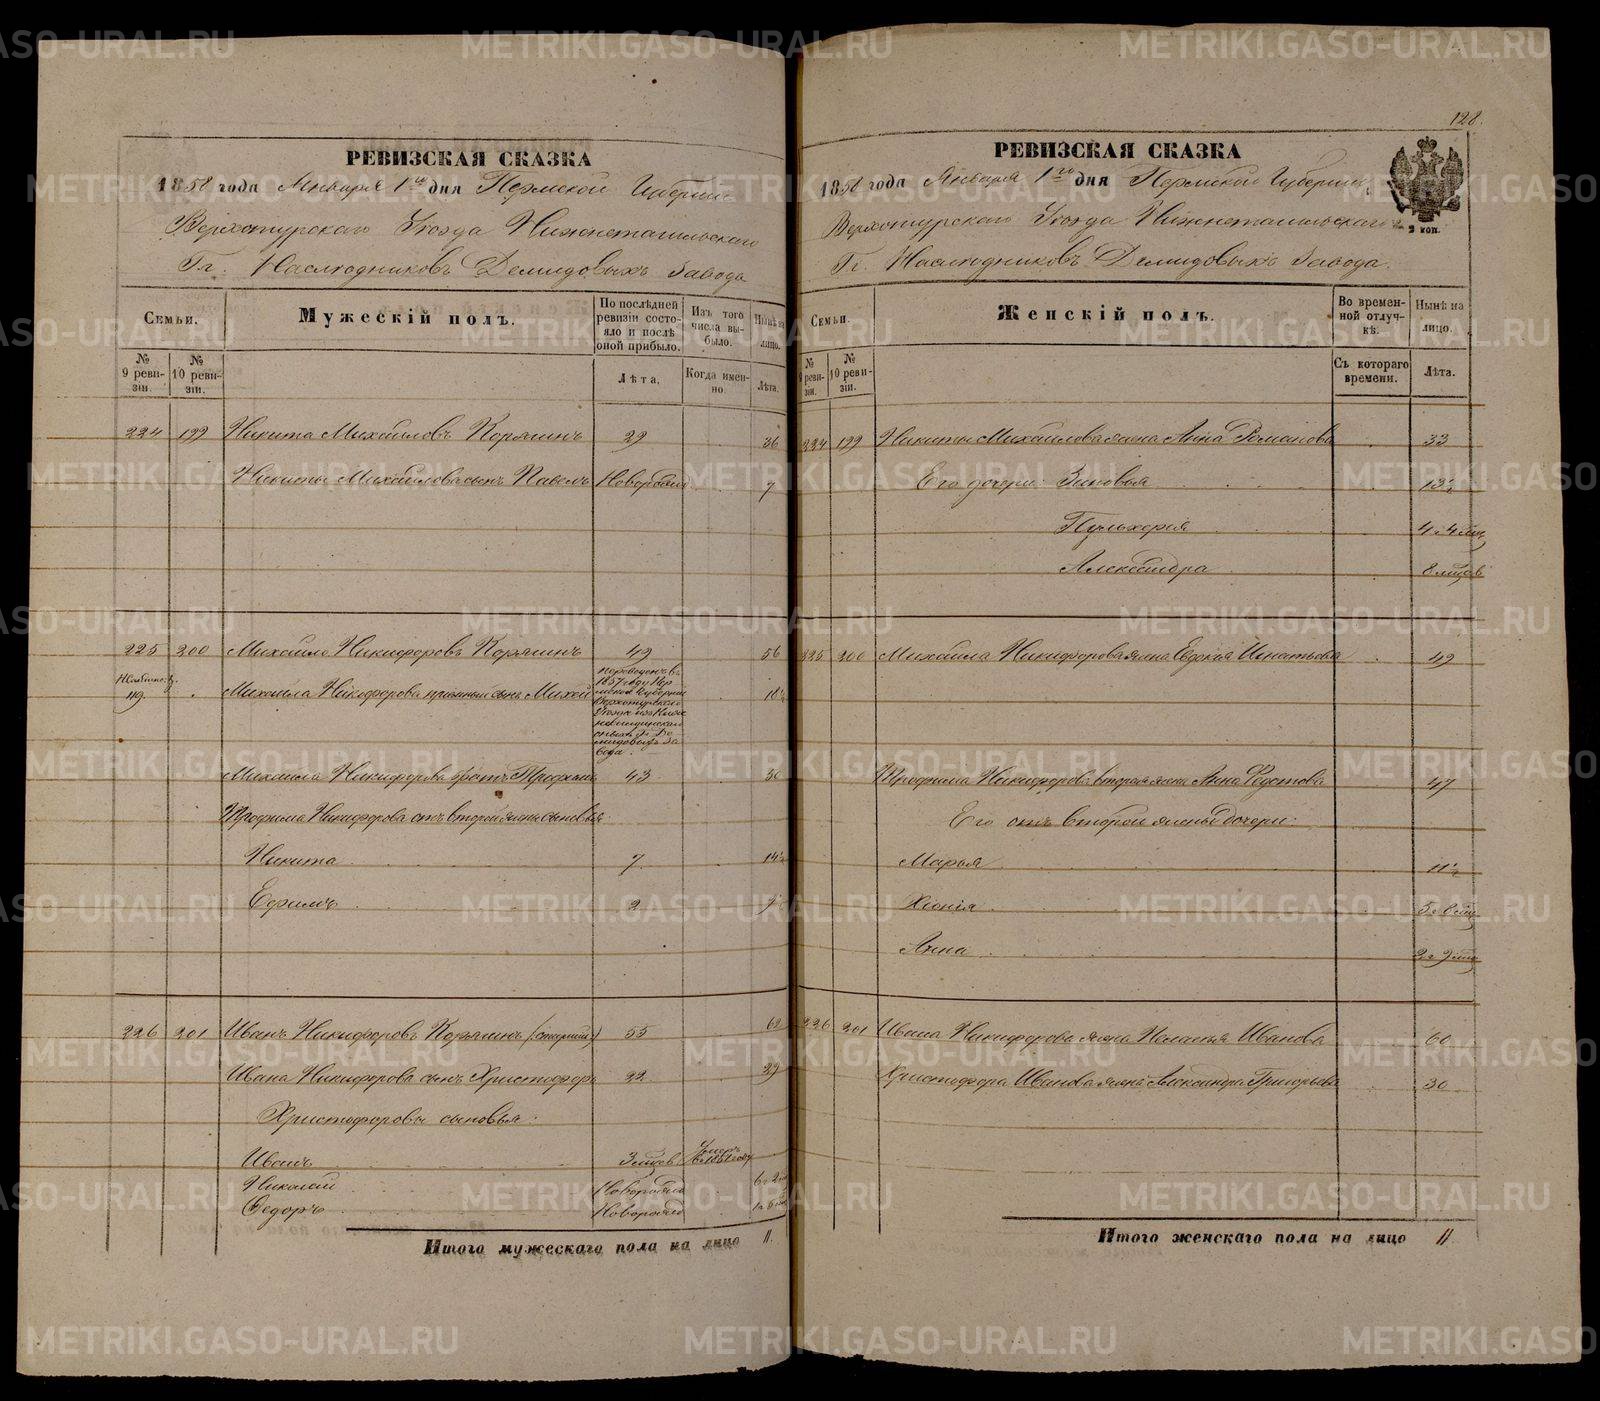 128.
РЕВИЗСКАЯ СКАЗКА
1858 года Января 1го дня Пермской Губерніи
Верхотурскаго Уѣзда Нижнетагильскаго
Гг. Наслѣдниковъ Демидовыхъ Завода
Семьи.
Мужескій полъ.
По послѣдней ревизіи состояло и послѣ оной прибыло.
Изъ того числа выбыло.
Нынѣ на лицо.
№ 9 ревизіи.
№ 10 ревизіи.
Лѣта.
Когда именно.
Лѣта.
224 199 Никита Михайловъ Корякинъ 29 36
Никиты Михайлова сынъ Павелъ Новорожд 7
225 200 Михайло Никифоровъ Корякинъ 49 56
119. Михайла Никифорова пріемный сынъ Михей 18½
переведенъ въ
1857 году Пер
мской Губерніи
Верхотурскаго
Завода.
Михайла Никифорова братъ Трофимъ 43 50
Трофима Никифорова отъ второй жены сыновья
Никита 7 14½
Ефимъ 2 9
226 201 Иванъ Никифоровъ Корякинъ (старшій) 55 62
Ивана Никифорова сынъ Христофоръ 22 29
Христофоровы сыновья:
Иванъ 3 мѣсяцев Умеръ въ 1851 году
Николай Новорожд 6 г 2 м
Федоръ Новорожд
Итого мужескаго пола на лицо 11.
РЕВИЗСКАЯ СКАЗКА
1858 года Января 1го дня Пермской Губерніи,
Верхотурскаго Уѣзда Нижнетагильскаго
Гг. Наслѣдниковъ Демидовыхъ Завода.
2 коп.
Семьи.
Женскій полъ.
Во временной отлучкѣ.
Нынѣ на лицо.
№ 9 ревизіи.
№ 10 ревизіи.
Съ котораго времени.
Лѣта.
224 199 Никиты Михайлова жена Анна Романова 33
Его дочери: Зиновья 13½
Пульхерія 4 г 4 мѣс
Александра 8 мѣсяцев
225 200 Михайла Никифорова жена Евдокія Игнатьева 49
Трофима Никифорова вторая жена Анна Федотова 47
Его отъ второй жены дочери:
Марья 11½
Хіонія 5 г 8 мѣс
Анна 2 г 9 мѣс
226 201 Ивана Никифорова жена Меланья Иванова 60
Христофора Иванова жена Александра Григорьева 30
Итого женскаго пола на лицо 11
METRIKI.GASO-URAL.RU